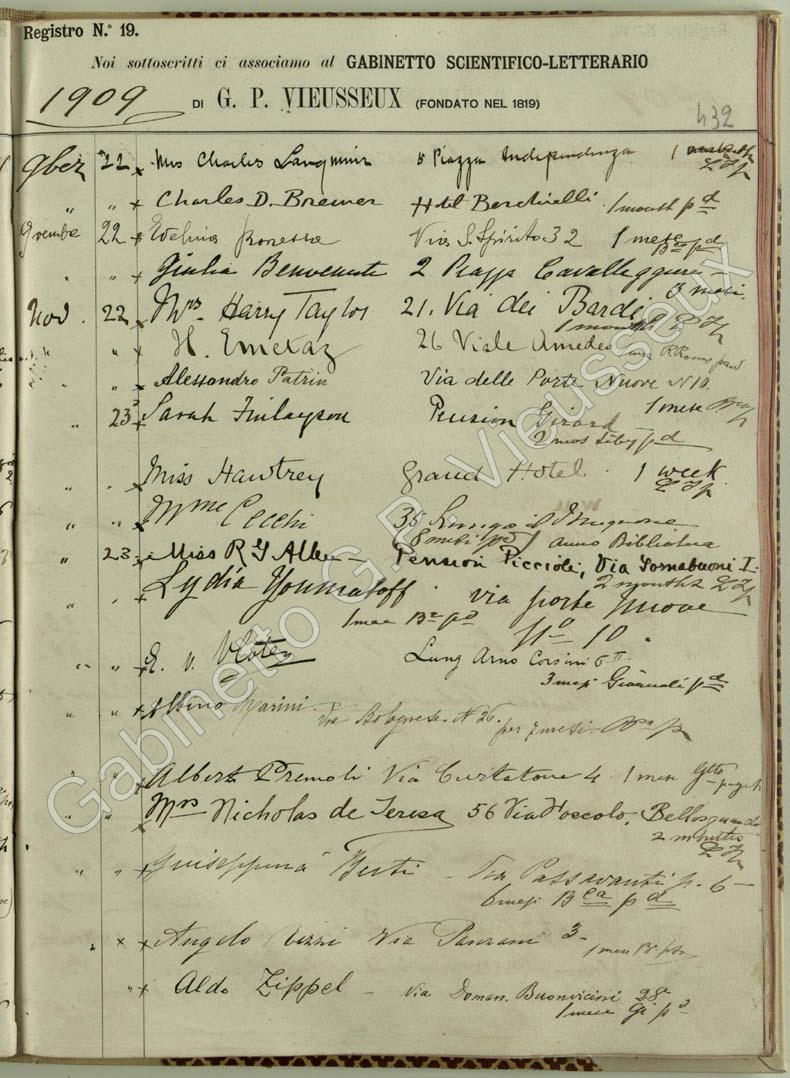 Registro N.º 19.
Noi sottoscritti ci associamo al GABINETTO SCIENTIFICO-LETTERARIO
1909 DI G. P. VIEUSSEUX (FONDATO NEL 1819)
432
9bez 22 x Mrs Charles 5 Piazza Independenza 1
" " x Charles D. Bremer Hotel Berchielli 1 month pd
9vembe 22 x Evelina Via S. Spirito 32 1 mese
pd
" " x Giulia Benvenuti 2 Piazza Cavalleggieri
3 mesi
Nov. 22 x Mrs Harry Taylor 21. Via dei Bardi
1 month
" x H. Emetaz 26 Viale Amedeo
" x Alessandro Patrin Via delle Porte Nuove N 10.
1 mese
" 23 x Sarah Finlayson Pension Girard
2 mos pd
" " x Miss Hawtrey Grand Hotel. 1 week
" " x Mme Cecchi 35 Lungo il Mugnone
anno Biblioteca
" 23 x Miss R G Allen Pension Piccioli, Via Tornabuoni I.
2 months
" " x Lydia Youmatoff. via porte Nuove
1 mese
No 10.
" " x E. v. Vloten Lung Arno Corsini 6 II
3 mesi Giornali pd
" " x Albino Marini. Via Bolognese. N 26.
per 7 mesi
" x Albert Premoli Via Curtatone 4. 1 mese
" " x Mrs Nicholas de Teresa 56 Via Foscolo, Bellosguardo
2 months
" " x Giuseppina Berti Via Passavanti p. 6
6 mesi Bca pd
" x x Angelo Via Panzani 3
1 mese
" x Aldo Zippel Via Domen. Buonvicini 28
1 mese
Gabinetto G.P. Vieusseux